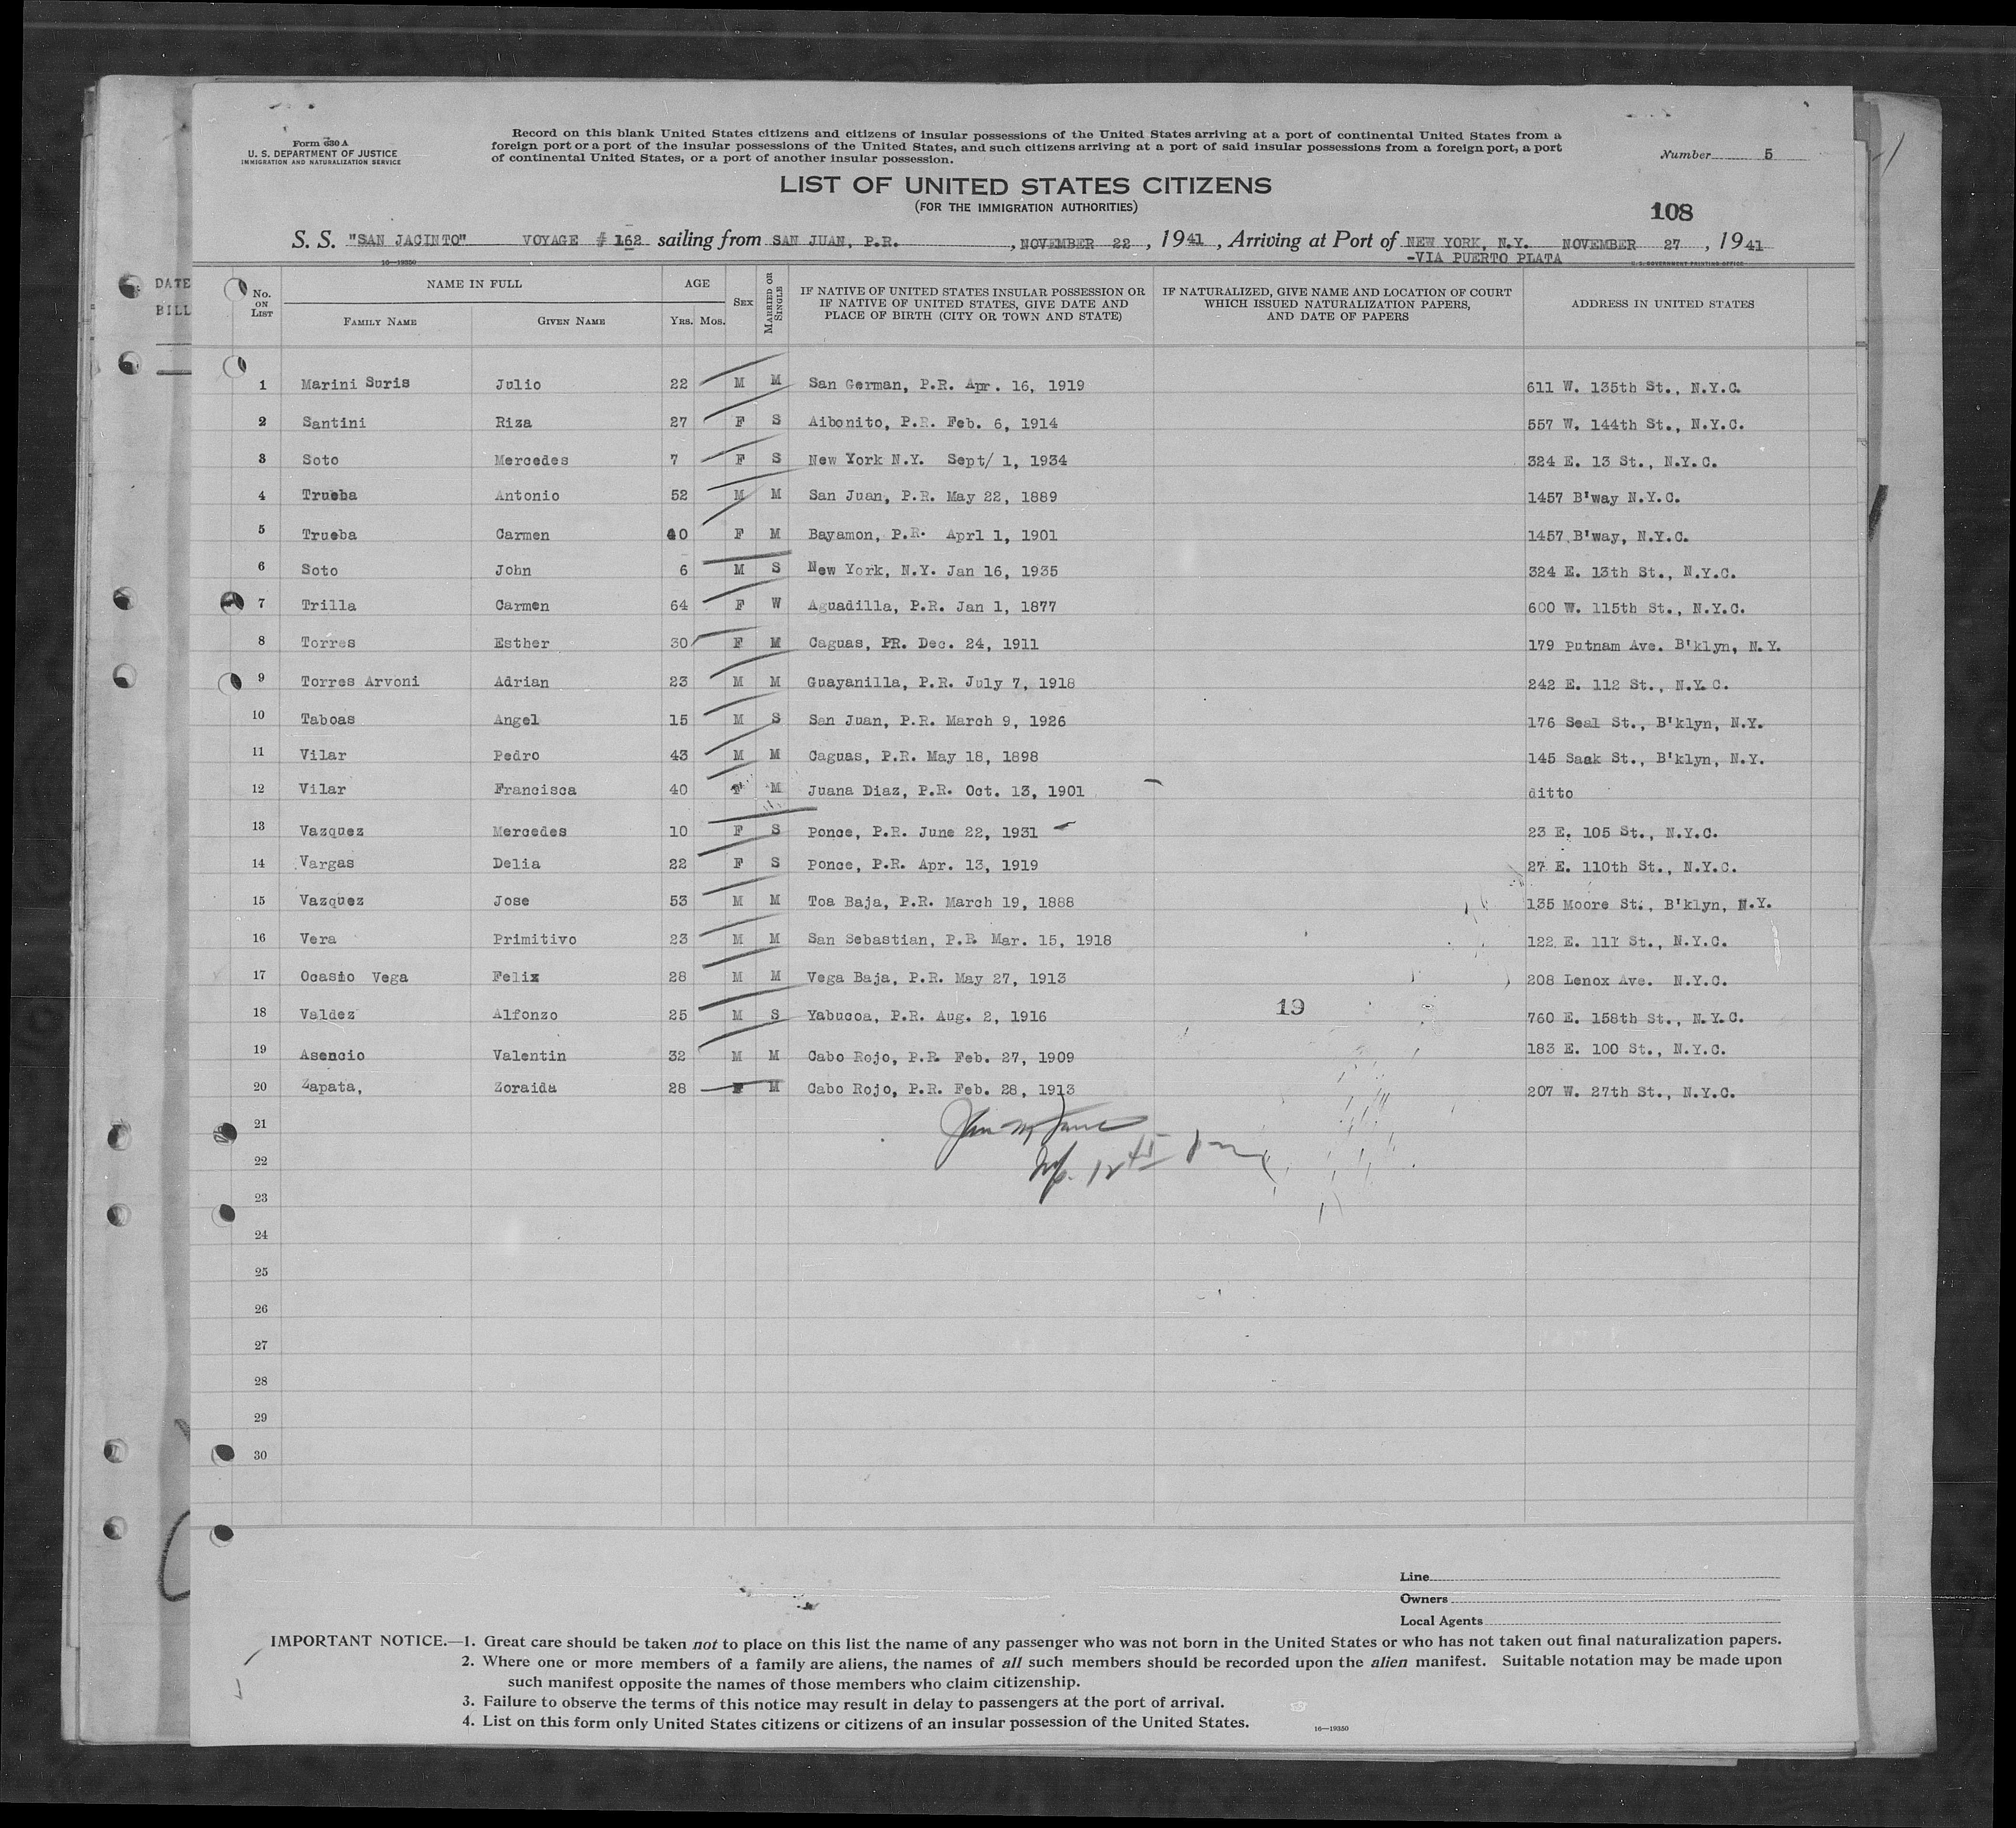 Form 630 A
U. S. DEPARTMENT OF JUSTICE
IMMIGRATION AND NATURALIZATION SERVICE
Record on this blank United States citizens and citizens of insular possessions of the United States arriving at a port of continental United States from a
foreign port or a port of the insular possessions of the United States, and such citizens arriving at a port of said insular possessions from a foreign port, a port
of continental United States, or a port of another insular possession.
Number 5
LIST OF UNITED STATES CITIZENS
(FOR THE IMMIGRATION AUTHORITIES)
108
S. S. "SAN JACINTO" VOYAGE # 162 sailing from SAN JUAN, P.R. , NOVEMBER 22 , 1941 , Arriving at Port of NEW YORK, N.Y. NOVEMBER 27 , 1941
-VIA PUERTO PLATA
16—19350 U. S. GOVERNMENT PRINTING OFFICE
DATE
BILL
No. ON LIST NAME IN FULL FAMILY NAME GIVEN NAME AGE YRS. MOS. SEX MARRIED OR SINGLE
IF NATIVE OF UNITED STATES INSULAR POSSESSION OR IF NATIVE OF UNITED STATES, GIVE DATE AND PLACE OF BIRTH (CITY OR TOWN AND STATE)
IF NATURALIZED, GIVE NAME AND LOCATION OF COURT WHICH ISSUED NATURALIZATION PAPERS, AND DATE OF PAPERS
ADDRESS IN UNITED STATES
1 Marini Suris Julio 22 M M San German, P.R. Apr. 16, 1919 611 W. 135th St., N.Y.C.
2 Santini Riza 27 F S Aibonito, P.R. Feb. 6, 1914 557 W. 144th St., N.Y.C.
3 Soto Mercedes 7 F S New York N.Y. Sept/ 1, 1934 324 E. 13 St., N.Y.C.
4 Trueba Antonio 52 M M San Juan, P.R. May 22, 1889 1457 B'way N.Y.C.
5 Trueba Carmen 40 F M Bayamon, P.R. Aprl 1, 1901 1457 B'way, N.Y.C.
6 Soto John 6 M S New York, N.Y. Jan 16, 1935 324 E. 13th St., N.Y.C.
7 Trilla Carmen 64 F W Aguadilla, P.R. Jan 1, 1877 600 W. 115th St., N.Y.C.
8 Torres Esther 30 F M Caguas, PR. Dec. 24, 1911 179 Putnam Ave. B'klyn, N.Y.
9 Torres Arvoni Adrian 23 M M Guayanilla, P.R. July 7, 1918 242 E. 112 St., N.Y.C.
10 Taboas Angel 15 M S San Juan, P.R. March 9, 1926 176 Seal St., B'klyn, N.Y.
11 Vilar Pedro 43 M M Caguas, P.R. May 18, 1898 145 Saak St., B'klyn, N.Y.
12 Vilar Francisca 40 F M Juana Diaz, P.R. Oct. 13, 1901 ditto
13 Vazquez Mercedes 10 F S Ponce, P.R. June 22, 1931 23 E. 105 St., N.Y.C.
14 Vargas Delia 22 F S Ponce, P.R. Apr. 13, 1919 27 E. 110th St., N.Y.C.
15 Vazquez Jose 53 M M Toa Baja, P.R. March 19, 1888 135 Moore St., B'klyn, N.Y.
16 Vera Primitivo 23 M M San Sebastian, P.R. Mar. 15, 1918 122 E. 111 St., N.Y.C.
17 Ocasio Vega Felix 28 M M Vega Baja, P.R. May 27, 1913 208 Lenox Ave. N.Y.C.
18 Valdez Alfonzo 25 M S Yabucoa, P.R. Aug. 2, 1916 19 760 E. 158th St., N.Y.C.
19 Asencio Valentin 32 M M Cabo Rojo, P.R. Feb. 27, 1909 183 E. 100 St., N.Y.C.
20 Zapata, Zoraida 28 F M Cabo Rojo, P.R. Feb. 28, 1913 207 W. 27th St., N.Y.C.
21
22
23
24
25
26
27
28
29
30
Line
Owners
Local Agents
IMPORTANT NOTICE.—1. Great care should be taken not to place on this list the name of any passenger who was not born in the United States or who has not taken out final naturalization papers.
2. Where one or more members of a family are aliens, the names of all such members should be recorded upon the alien manifest. Suitable notation may be made upon
such manifest opposite the names of those members who claim citizenship.
3. Failure to observe the terms of this notice may result in delay to passengers at the port of arrival.
4. List on this form only United States citizens or citizens of an insular possession of the United States.
16—19350